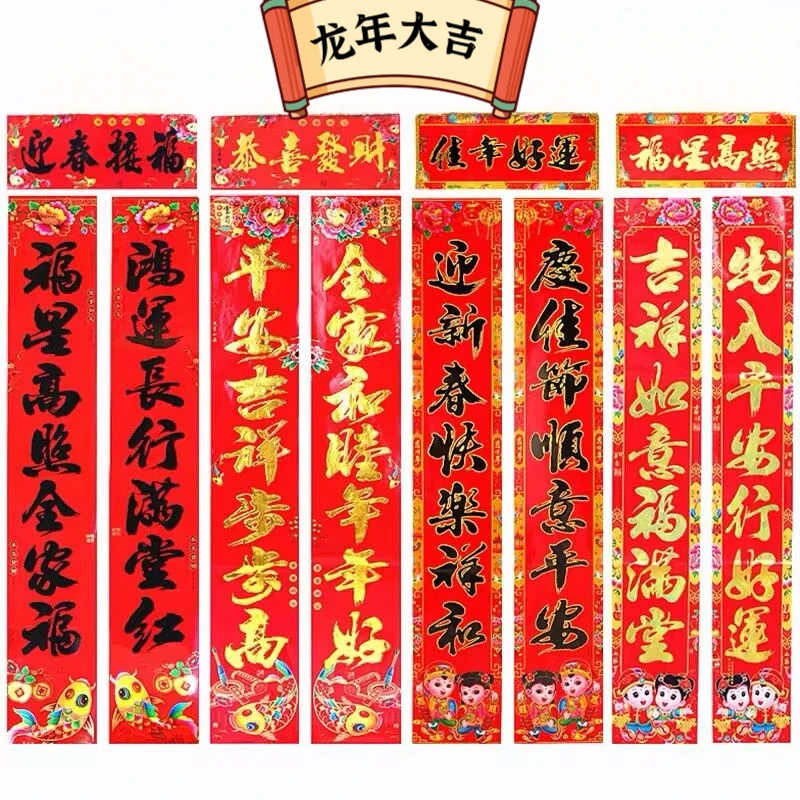 龙年大吉
迎春接福
恭喜發財
佳年好運
福星高照
福星高照全家福
鴻運長行滿堂紅
平安吉祥步步高
全家和睦年年好
迎新春快樂祥和
慶佳節順意平安
吉祥如意福滿堂
出入平安行好運